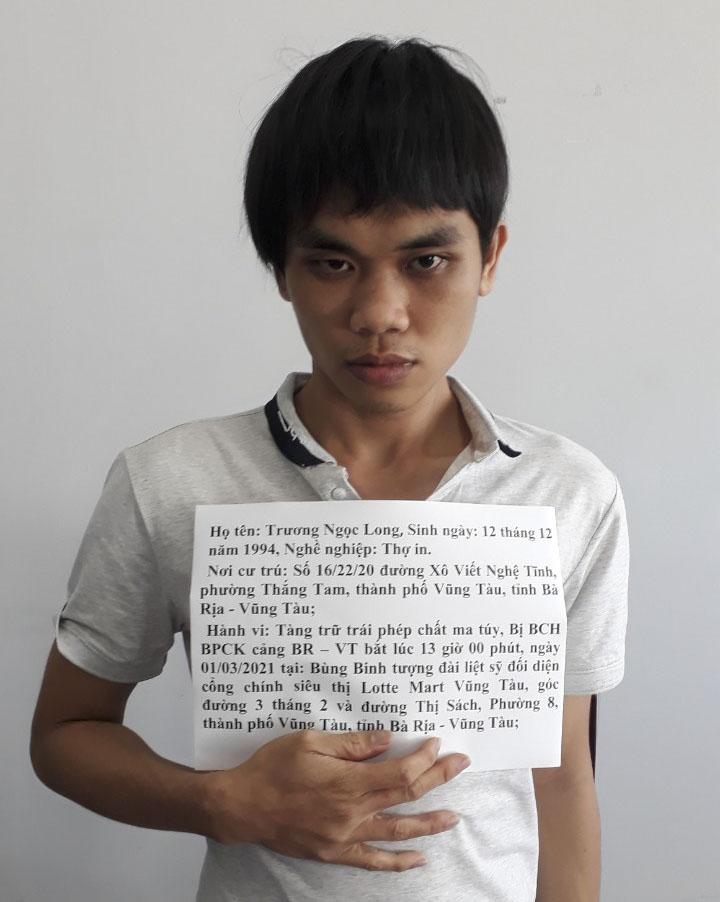 Họ tên: Trương Ngọc Long, Sinh ngày: 12 tháng 12
năm 1994, Nghề nghiệp: Thợ in.
Nơi cư trú: Số 16/22/20 đường Xô Viết Nghệ Tĩnh,
phường Thắng Tam, thành phố Vũng Tàu, tỉnh Bà
Rịa - Vũng Tàu;
Hành vi: Tàng trữ trái phép chất ma túy, Bị BCH
BPCK cảng BR – VT bắt lúc 13 giờ 00 phút, ngày
01/03/2021 tại: Bùng Binh tượng đài liệt sỹ đối diện
cổng chính siêu thị Lotte Mart Vũng Tàu, góc
đường 3 tháng 2 và đường Thị Sách, Phường 8,
thành phố Vũng Tàu, tỉnh Bà Rịa - Vũng Tàu;